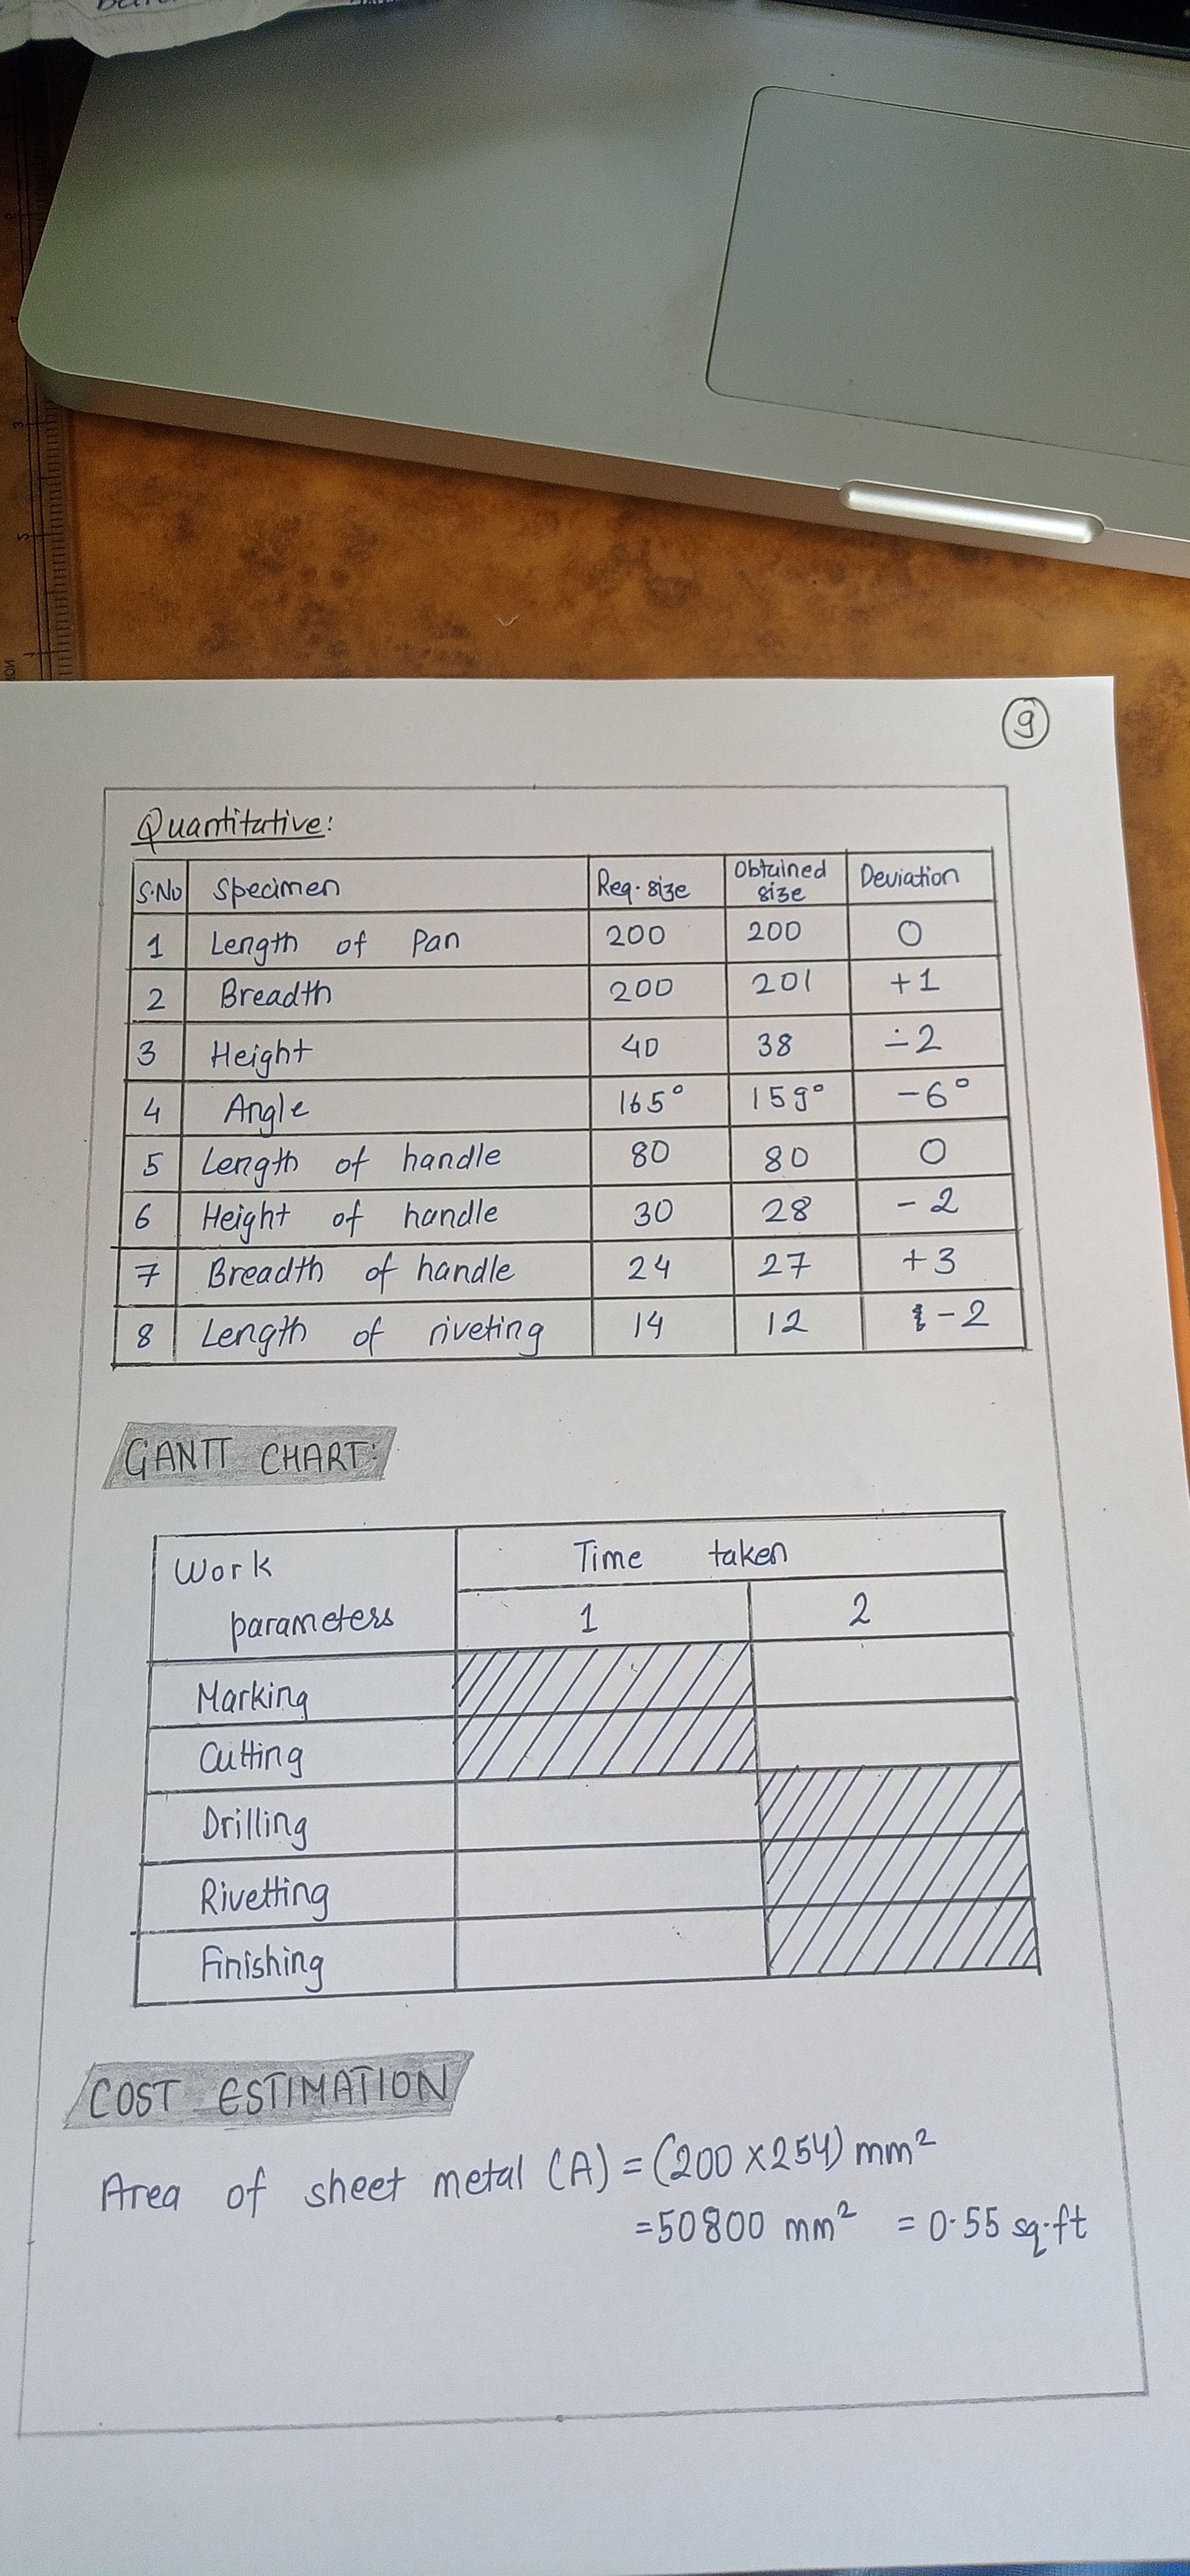 9
Quantitative:
S.No Specimen Req. size Obtained size Deviation
1 Length of Pan 200 200 0
2 Breadth 200 201 +1
3 Height 40 38 -2
4 Angle 165° 159° -6°
5 Length of handle 80 80 0
6 Height of handle 30 28 -2
7 Breadth of handle 24 27 +3
8 Length of riveting 14 12 -2
GANTT CHART:
Work parameters Time taken
1 2
Marking
Cutting
Drilling
Rivetting
Finishing
COST ESTIMATION
Area of sheet metal (A) = (200 x 254) mm²
= 50800 mm² = 0.55 sq.ft